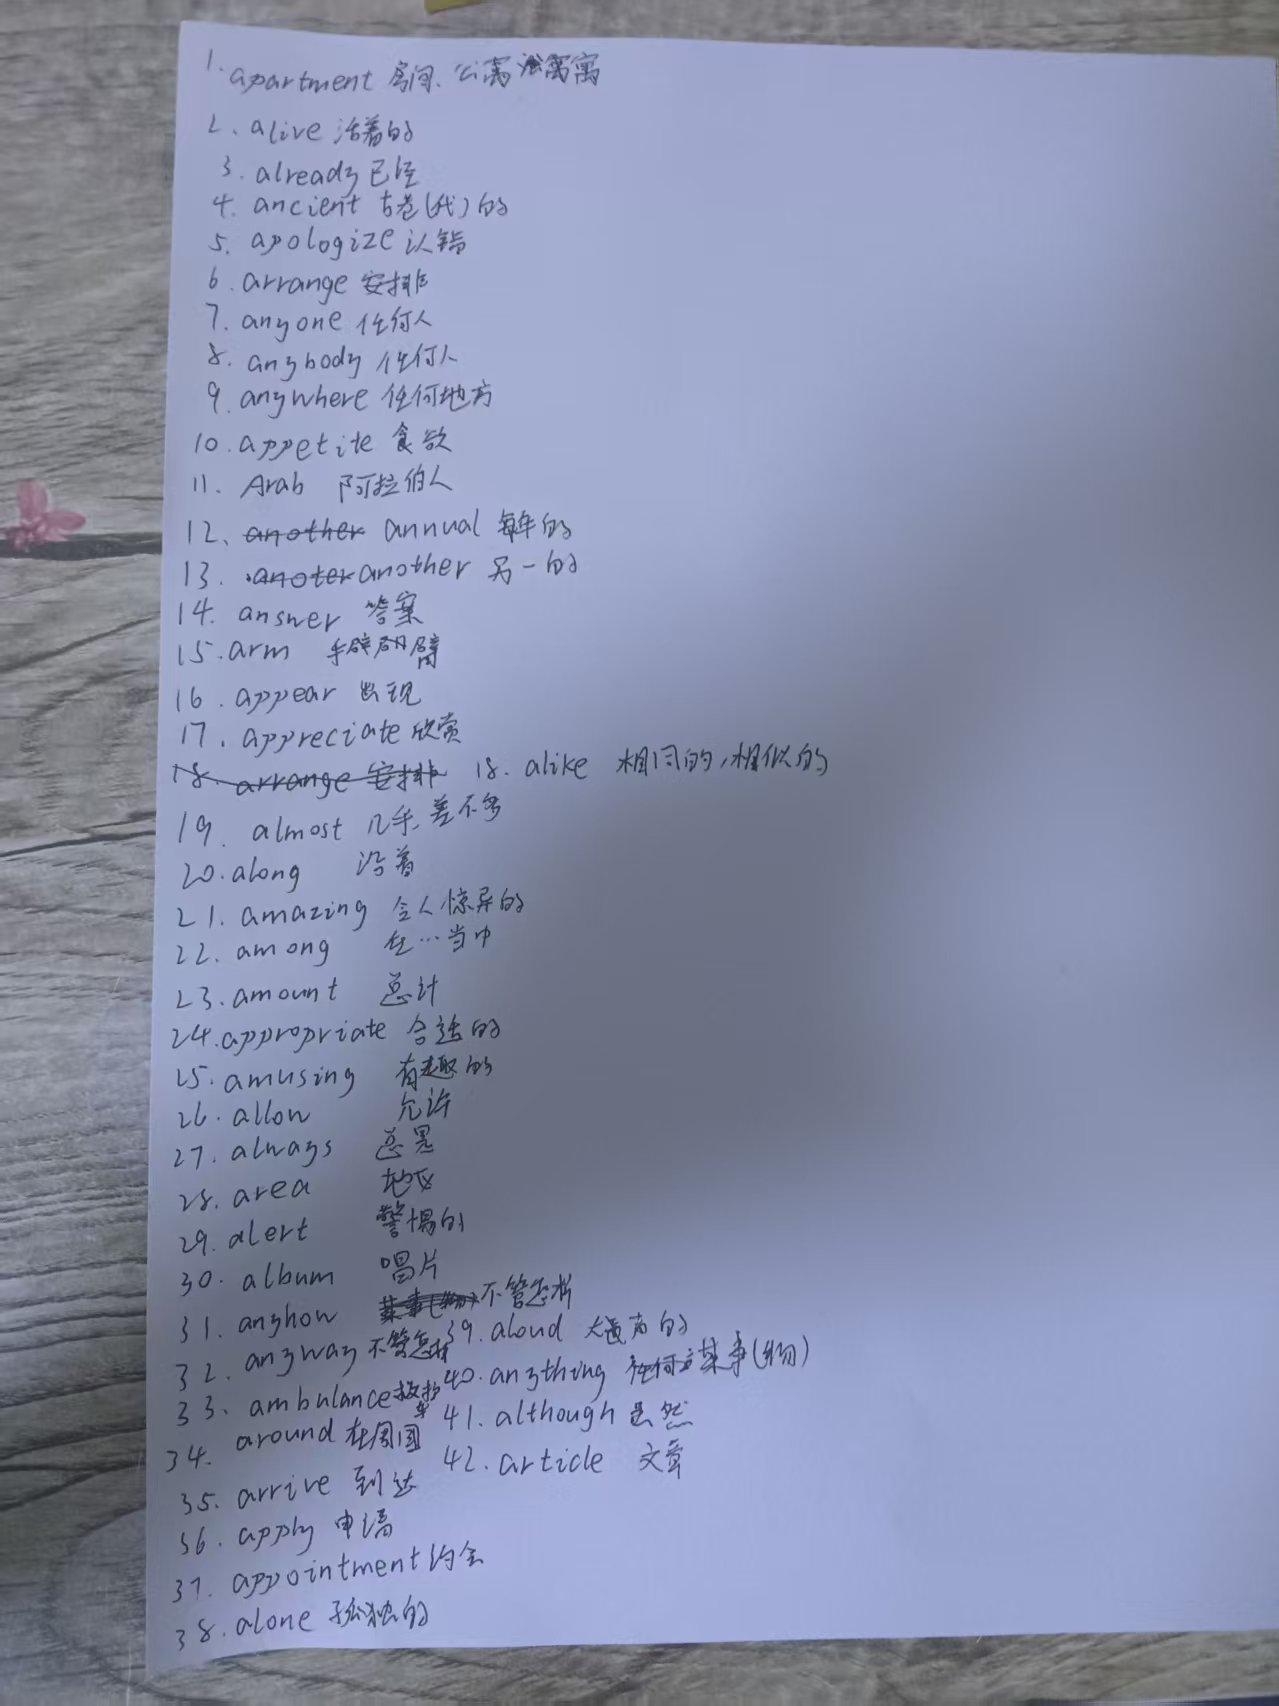 1. apartment 房间、公寓 寓寓
2. alive 活着的
3. already 已经
4. ancient 古老(代)的
5. apologize 认错
6. arrange 安排
7. anyone 任何人
8. anybody 任何人
9. anywhere 任何地方
10. appetite 食欲
11. Arab 阿拉伯人
12. another annual 每年的
13. anoter another 另一的
14. answer 答案
15. arm 手臂
16. appear 出现
17. appreciate 欣赏
18. arrange 安排 18. alike 相同的,相似的
19. almost 几乎、差不多
20. along 沿着
21. amazing 令人惊异的
22. among 在…当中
23. amount 总计
24. appropriate 合适的
25. amusing 有趣的
26. allow 允许
27. always 总是
28. area 地区
29. alert 警惕的
30. album 唱片
31. anyhow 某事(物) 不管怎样
32. anyway 不管怎样
33. ambulance 救护车
34. around 在周围
35. arrive 到达
36. apply 申请
37. appointment 约会
38. alone 孤独的
39. aloud 大声的
40. anything 任何某事(物)
41. although 虽然
42. article 文章